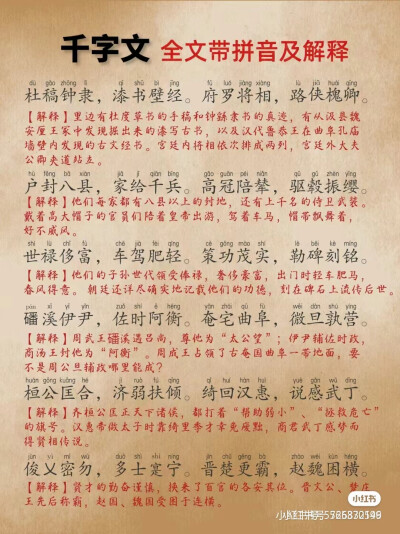 千字文 全文带拼音及解释
dù gǎo zhōng lì qī shū bì jīng fǔ luó jiàng xiàng lù jiá huái qīng
杜稿钟隶，漆书壁经。府罗将相，路侠槐卿。
【解释】里边有杜度草书的手稿和钟繇隶书的真迹，有从汲县魏
安厘王冢中发现掘出来的漆写古书，以及汉代鲁恭王在曲阜孔庙
墙壁内发现的古文经书。宫廷内将相依次排成两列，宫廷外大夫
公卿夹道站立。
户封八县，家给千兵。高冠陪辇，驱毂振缨。
【解释】他们每家都有八县以上的封地，还有上千名的侍卫武装。
戴着高大帽子的官员们陪着皇帝出游，驾着车马，帽带飘舞着，
好不威风。
世禄侈富，车驾肥轻。策功茂实，勒碑刻铭。
【解释】他们的子孙世代领受俸禄，奢侈豪富，出门时轻车肥马，
春风得意。朝廷还详尽确实地记载他们的功德，刻在碑石上流传后世。
磻溪伊尹，佐时阿衡。奄宅曲阜，微旦孰营。
【解释】周武王磻溪遇吕尚，尊他为“太公望”；伊尹辅佐时政，
商汤王封他为“阿衡”。周成王占领了古奄国曲阜一带地面，要
不是周公旦辅政哪里能成？
桓公匡合，济弱扶倾。绮回汉惠，说感武丁。
【解释】齐桓公匡正天下诸侯，都打着“帮助弱小”、“拯救危亡”
的旗号。汉惠帝做太子时靠绮里季才幸免废黜，商君武丁感梦而
得贤相传说。
俊乂密勿，多士寔宁。晋楚更霸，赵魏困横。
【解释】贤才的勤奋谨慎，换来了百官的各安其位。晋文公、楚庄
王先后称霸，赵国、魏国受困于连横。
小红书